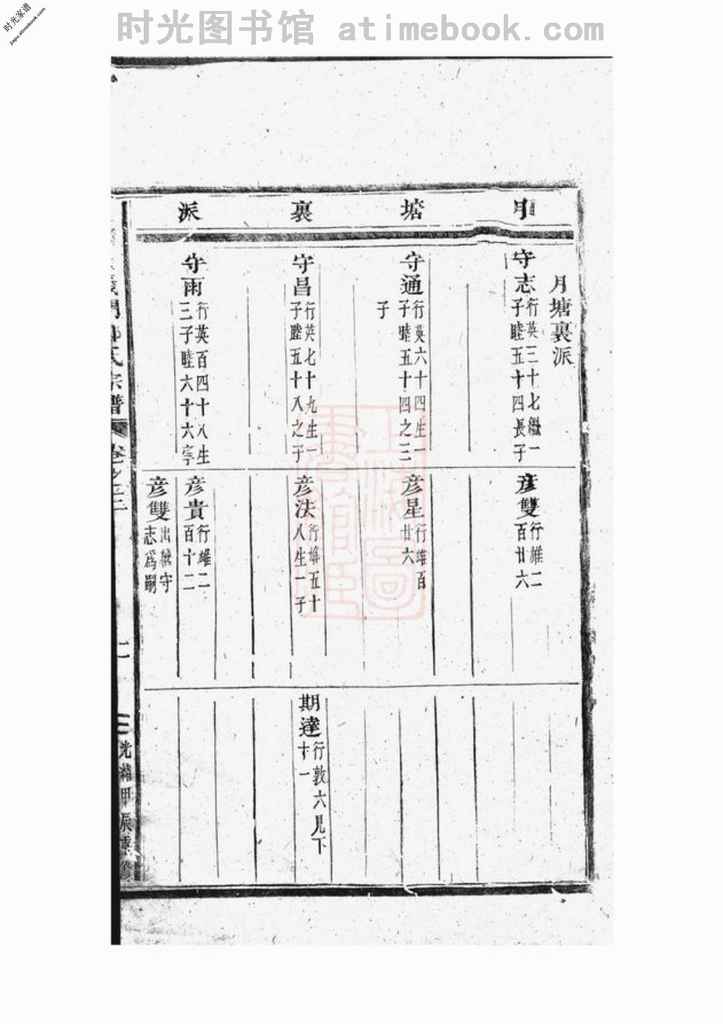 时光图书馆 atimebook.com
时光家谱
月塘裏派
月塘裏派
守志
行英三十七繼一
子睦五十四長子
守通
行英六十四生一
子睦五十四之三
子
守昌
行英七十九生一
子睦五十八之子
守雨
行英百四十八生
三子睦六十六
彦雙
行雄二
百廿六
彦星
行雄百
廿六
彦法
行雄五十
八生一子
彦貴
行雄二
百十二
彦雙
出繼守
志爲嗣
期達
行敦六見下
十一
義門 氏宗譜
卷之
二
甲辰重